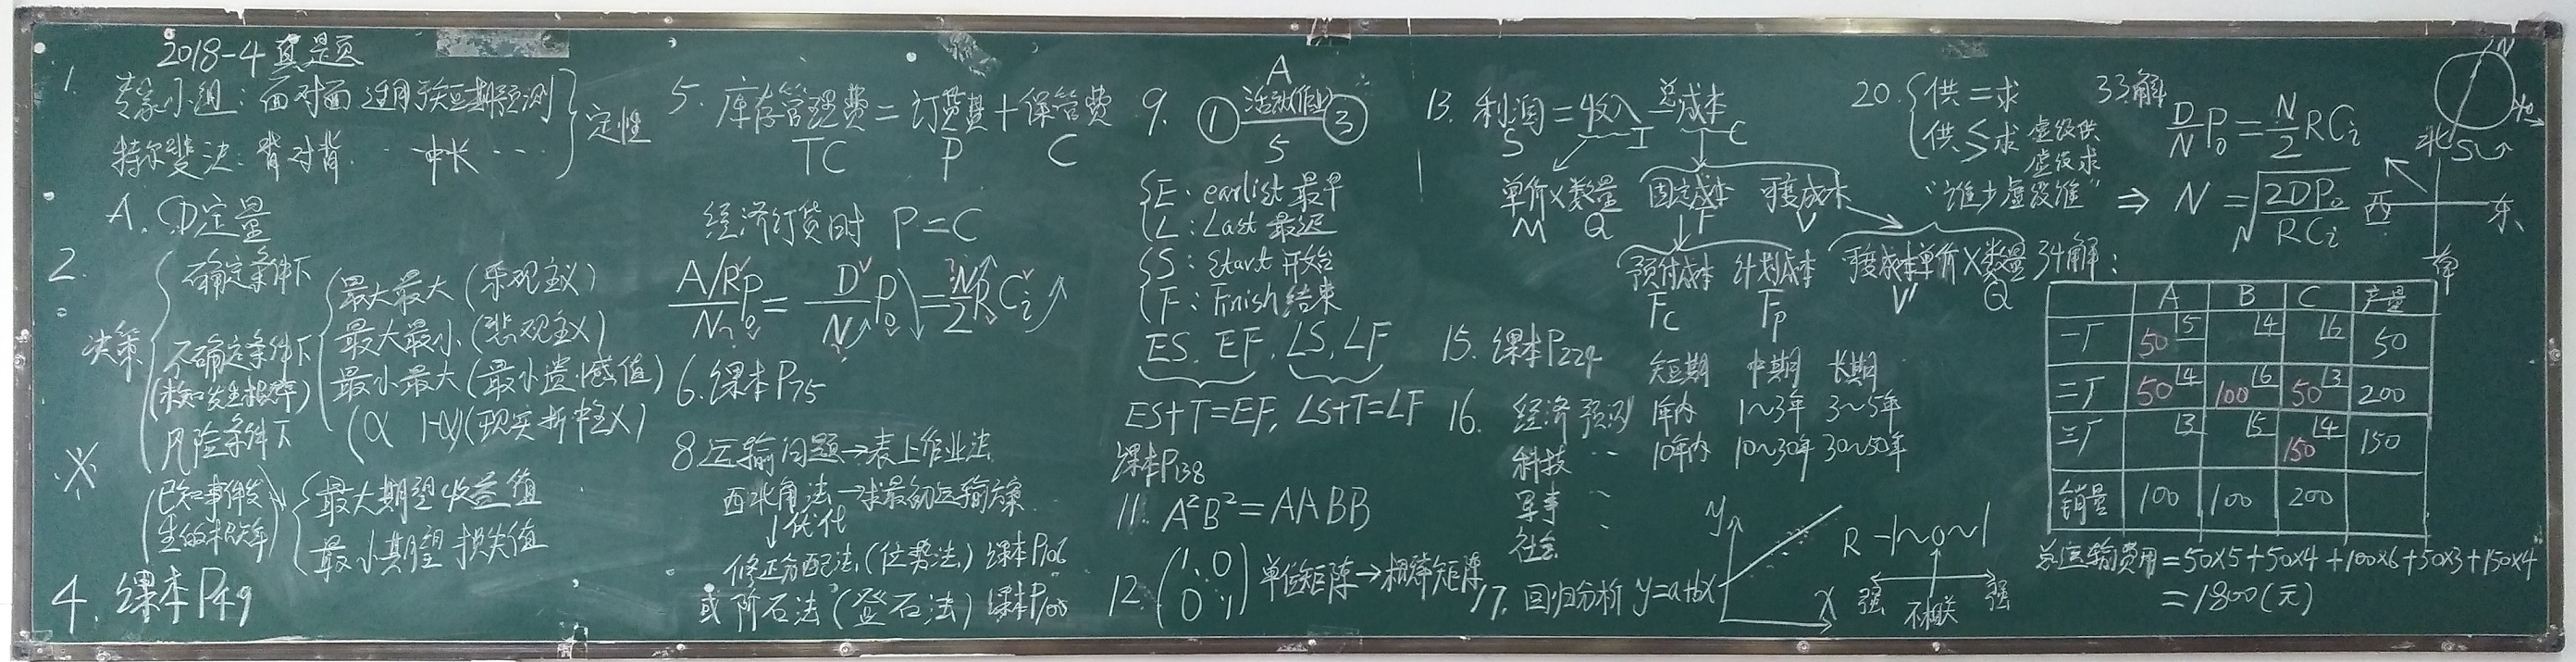 2018-4真题
1. 专家小组：面对面 适用于短期预测
特尔斐法：背对背 ·· 中长 ···
定性
A. CD定量
2.
决策
确定条件下
不确定条件下
(未知发生概率)
最大最大（乐观主义）
最大最小（悲观主义）
最小最大（最小遗憾值）
(α 1-α)(现实折中主义)
风险条件下
(已知事件发生的概率)
最大期望收益值
最小期望损失值
4. 课本P49
5. 库存管理费=订货费+保管费
TC P C
经济订货时 P=C
A/R P₀/N = D/N P₀ = N/2 R Ci
6. 课本P75
8 运输问题→表上作业法
西北角法→求最初运输方案
↓优化
修正分配法(位势法) 课本P106
或 阶石法(登石法) 课本P100
9. ① A 活动(作业) 5 ③
E：earlist 最早
L：Last 最迟
S：Start 开始
F：Finish 结束
ES, EF, LS, LF
ES+T=EF, LS+T=LF
课本P138
11. A²B²=AABB
12. (1, 0
0 1) 单位矩阵→概率矩阵
13. 利润=收入-总成本
S I C
单价×数量 固定成本 可变成本
M Q F V
预付成本 计划成本 可变成本单价×数量
Fc Fp V' Q
15. 课本P224
短期 中期 长期
16. 经济预测 1年内 1~3年 3~5年
科技 ·· 10年内 10~30年 30~50年
军事 ··
社会 ··
17. 回归分析 y=a+bx
y x
R -1~0~1
强 不相关 强
20. 供=求
供≶求 虚设供
虚设求
“谁少虚设谁”
33解
D/N P₀=N/2 RCi
⇒ N=√2DP₀/RCi
N S
北
西 东
南
34解：
A B C 产量
一厂 50 5 4 6 50
二厂 50 4 100 6 50 3 200
三厂 3 5 150 4 150
销量 100 100 200
总运输费用=50×5+50×4+100×6+50×3+150×4
=1800(元)